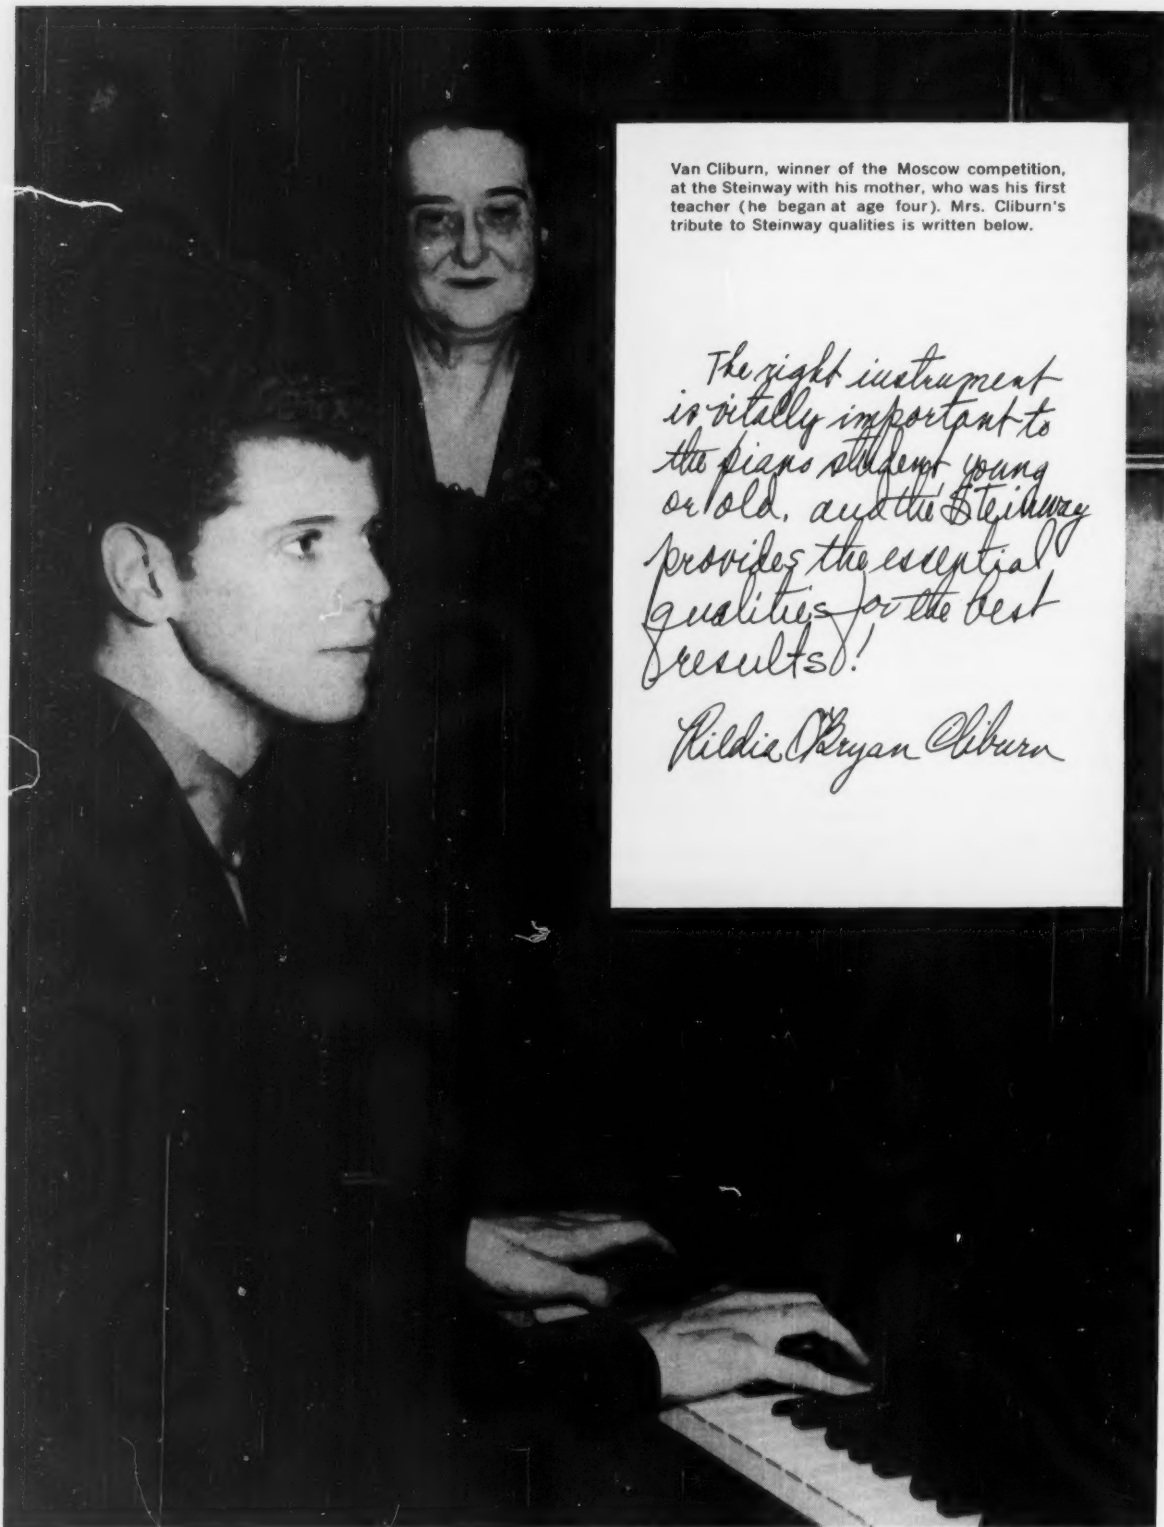 Van Cliburn, winner of the Moscow competition,
at the Steinway with his mother, who was his first
teacher (he began at age four). Mrs. Cliburn's
tribute to Steinway qualities is written below.
The right instrument
is vitally important to
the piano student, young
or old, and the Steinway
provides the essential
qualities for the best
results!
Rildia O'Bryan Cliburn